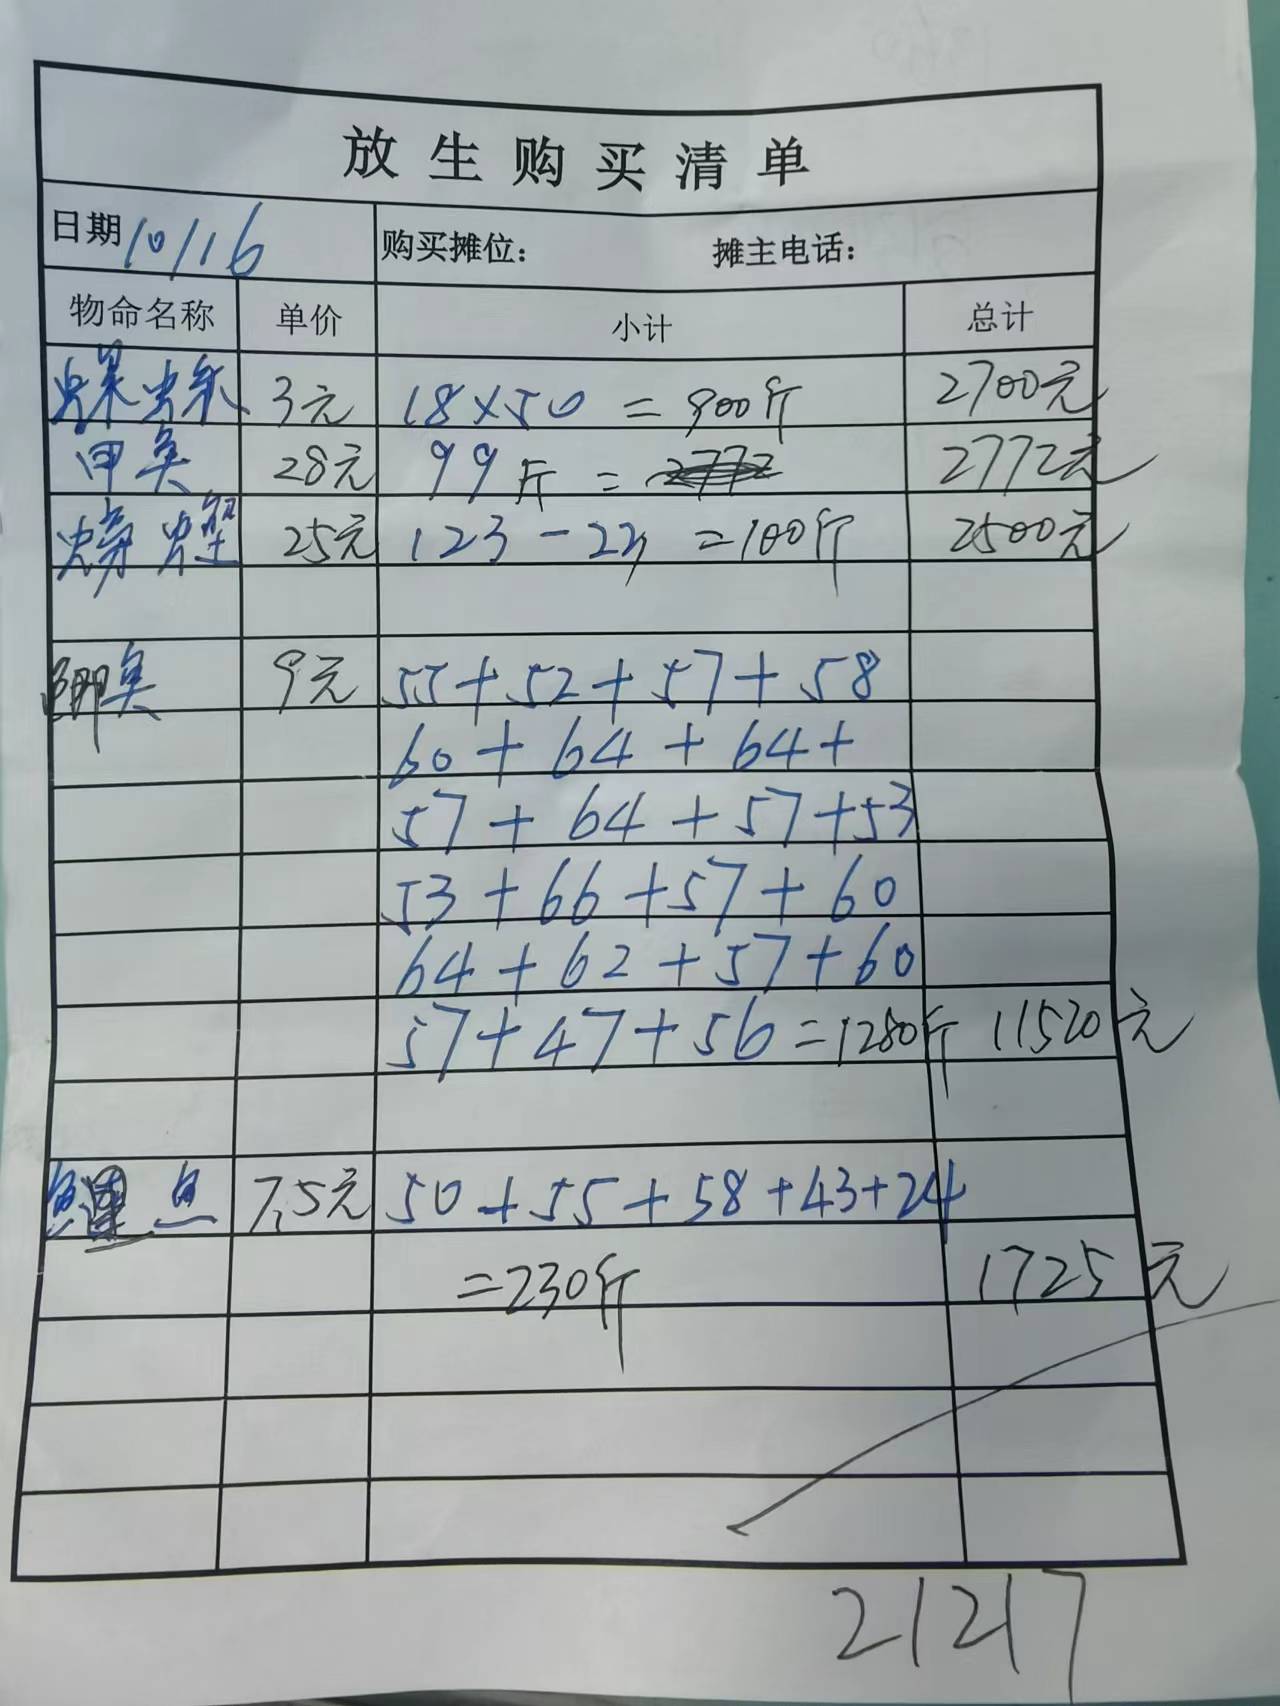 放生购买清单
日期 10/16 购买摊位： 摊主电话：
物命名称 单价 小计 总计
3元 18×50 = 900斤 2700元
甲鱼 28元 99斤 = 2772元
螃蟹 25元 123-23 =100斤 2500元
鲫鱼 9元 55+52+57+58
60+64+64+
57+64+57+53
53+66+57+60
64+62+57+60
57+47+56=1280斤 11520元
鲤鱼 7.5元 50+55+58+43+24
=230斤 1725元
21217